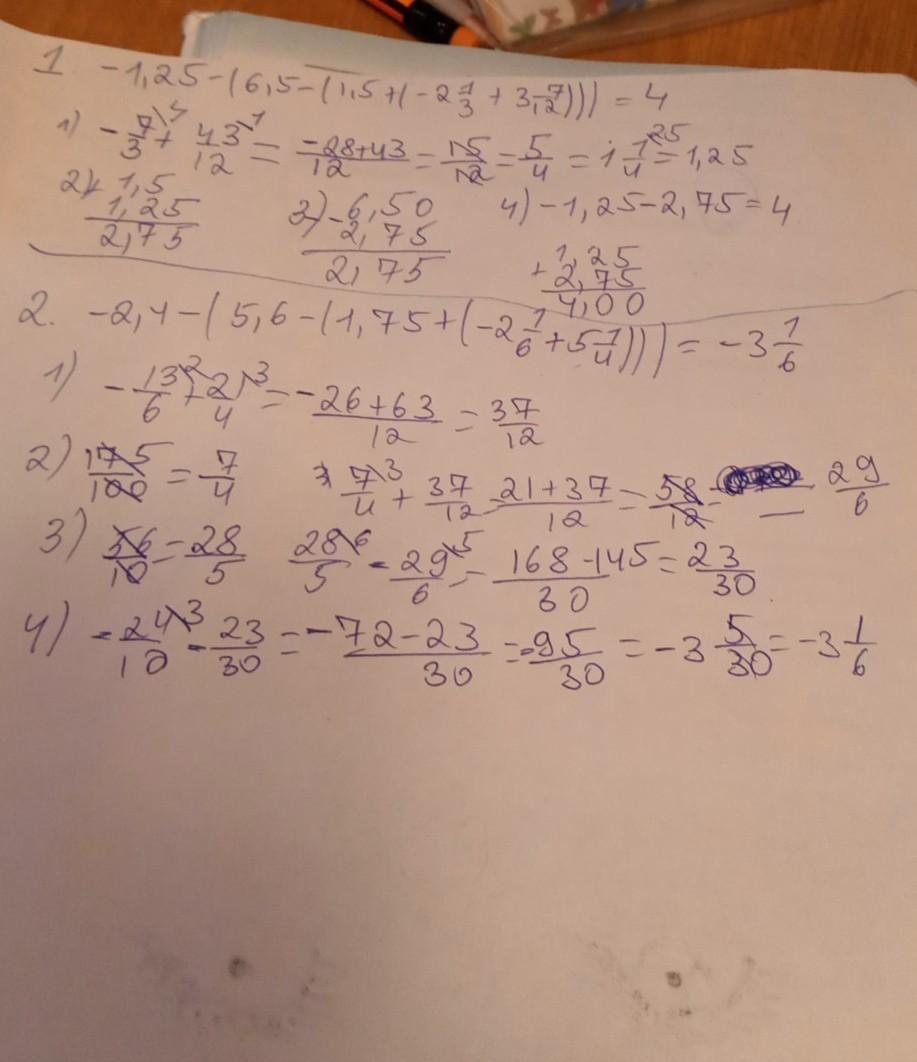 1. -1,25-(6,5-(1,5+(-2 1/3 + 3 7/12))) = 4
1) -7/3\4 + 43/12\1 = -28+43/12 = 15/12 = 5/4 = 1 1/4\25 = 1,25
2) + 1,5
1,25
2,75
3) - 6,50
2,75
2,75
4) -1,25-2,75=4
+ 1,25
2,75
4,00
2. -2,4-(5,6-(1,75+(-2 1/6 + 5 1/4))) = -3 1/6
1) -13/6\2 + 21/4\3 = -26+63/12 = 37/12
2) 175/100 = 7/4 7/4\3 + 37/12 = 21+37/12 = 58/12 = 29/6
3) 56/10 = 28/5 28/5\6 - 29/6\5 = 168-145/30 = 23/30
4) -24/10\3 - 23/30 = -72-23/30 = -95/30 = -3 5/30 = -3 1/6